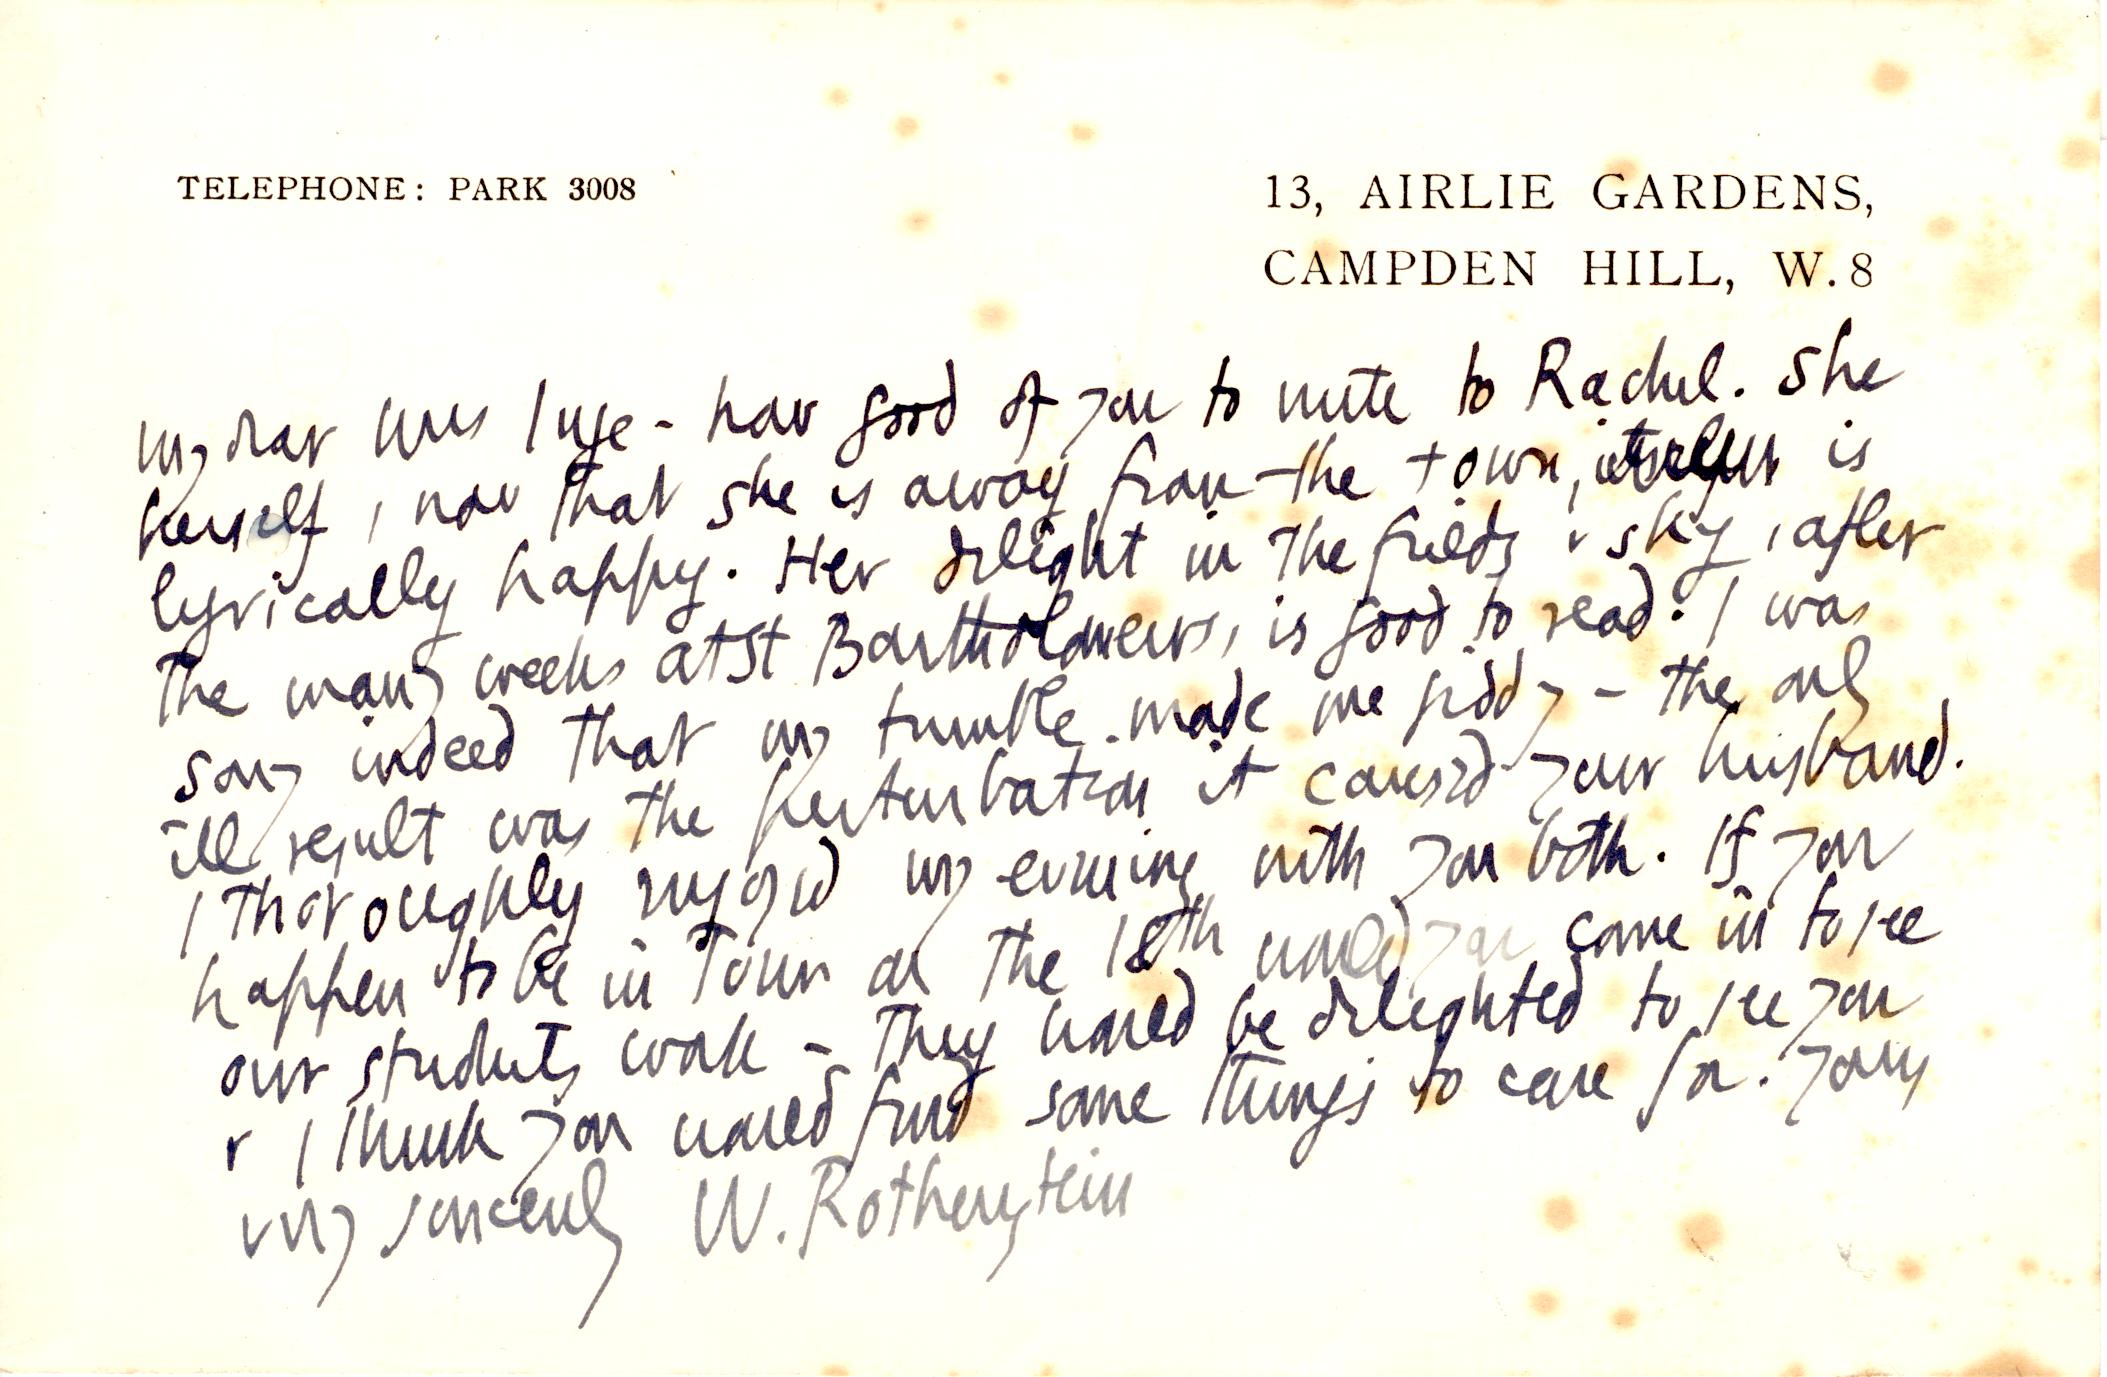 TELEPHONE: PARK 3008
13, AIRLIE GARDENS,
CAMPDEN HILL, W.8
My dear Mrs Inge - how good of you to write to Rachel. She
herself, now that she is away from the town, is
lyrically happy. Her delight in the fields & sky, after
the many weeks at St Bartholomews, is good to read. I was
sorry indeed that my tumble made me giddy - the only
ill result was the perturbation it caused your husband.
I thoroughly enjoyed my evening with you both. If you
happen to be in Town on the 18th would you come in to see
our students work - They would be delighted to see you
& I think you would find some things to care for. Yours
very sincerely W. Rothenstein